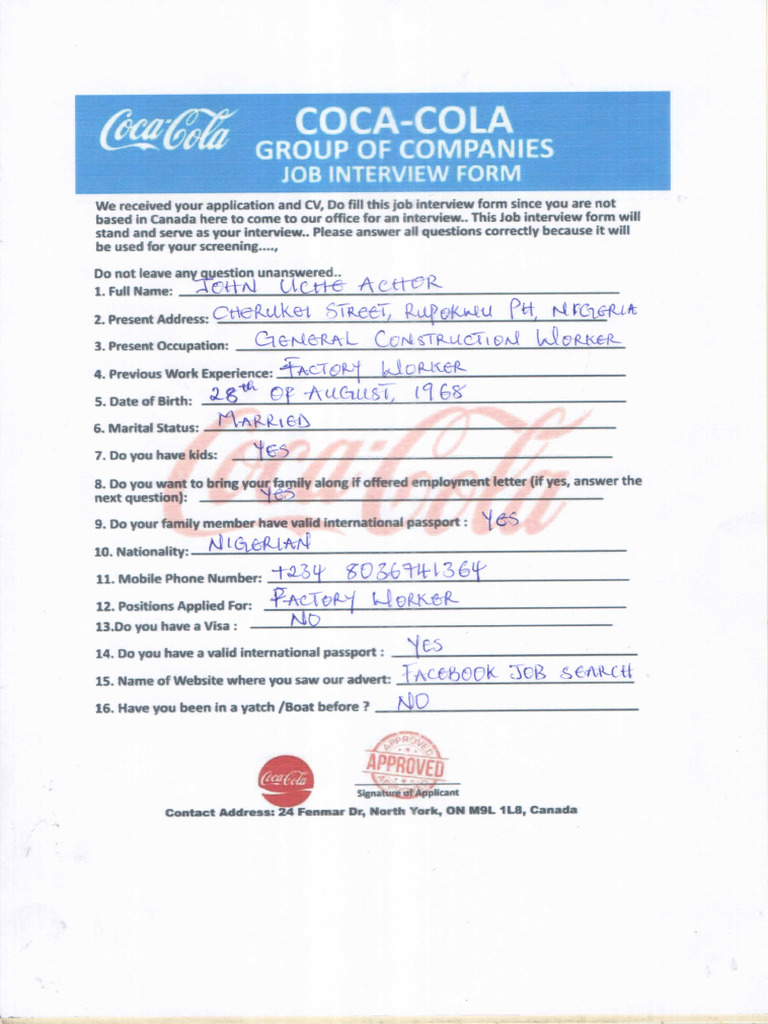 Coca-Cola
COCA-COLA
GROUP OF COMPANIES
JOB INTERVIEW FORM
We received your application and CV, Do fill this job interview form since you are not
based in Canada here to come to our office for an interview.. This Job interview form will
stand and serve as your interview.. Please answer all questions correctly because it will
be used for your screening....,
Do not leave any question unanswered..
1. Full Name: JOHN UCHE ACHOR
2. Present Address: CHERUKEI STREET, RUPOKWU PH, NIGERIA
3. Present Occupation: GENERAL CONSTRUCTION WORKER
4. Previous Work Experience: FACTORY WORKER
5. Date of Birth: 28th OF AUGUST, 1968
6. Marital Status: MARRIED
7. Do you have kids: YES
8. Do you want to bring your family along if offered employment letter (if yes, answer the
next question): YES
9. Do your family member have valid international passport : YES
10. Nationality: NIGERIAN
11. Mobile Phone Number: +234 8036741364
12. Positions Applied For: FACTORY WORKER
13.Do you have a Visa : NO
14. Do you have a valid international passport : YES
15. Name of Website where you saw our advert: FACEBOOK JOB SEARCH
16. Have you been in a yatch /Boat before ? NO
Coca-Cola
Coca-Cola
APPROVED
APPROVED
Signature of Applicant
Contact Address: 24 Fenmar Dr, North York, ON M9L 1L8, Canada